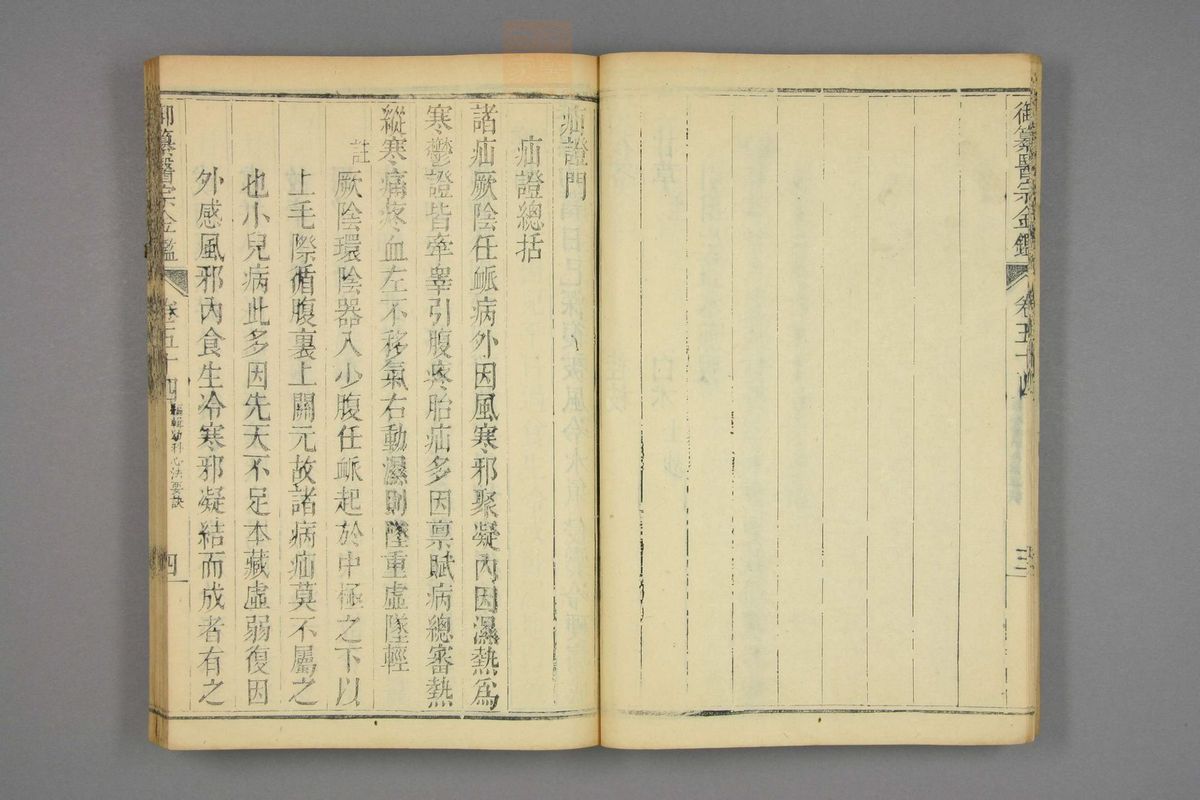 御纂醫宗金鑑
卷五十四
三
疝證門
疝證總括
諸疝厥陰任衇病外因風寒邪聚凝內因濕熱爲
寒鬱證皆牽睾引腹疼胎疝多因禀賦病總審熱
縱寒痛疼血左不移氣右動濕則墜重虛墜輕
註厥陰環陰器入少腹任衇起於中極之下以
上毛際循腹裏上關元故諸病疝莫不屬之
也小兒病此多因先天不足本藏虛弱復因
外感風邪內食生冷寒邪凝結而成者有之
御纂醫宗金鑑
卷五十四
編輯幼科心法要訣
四